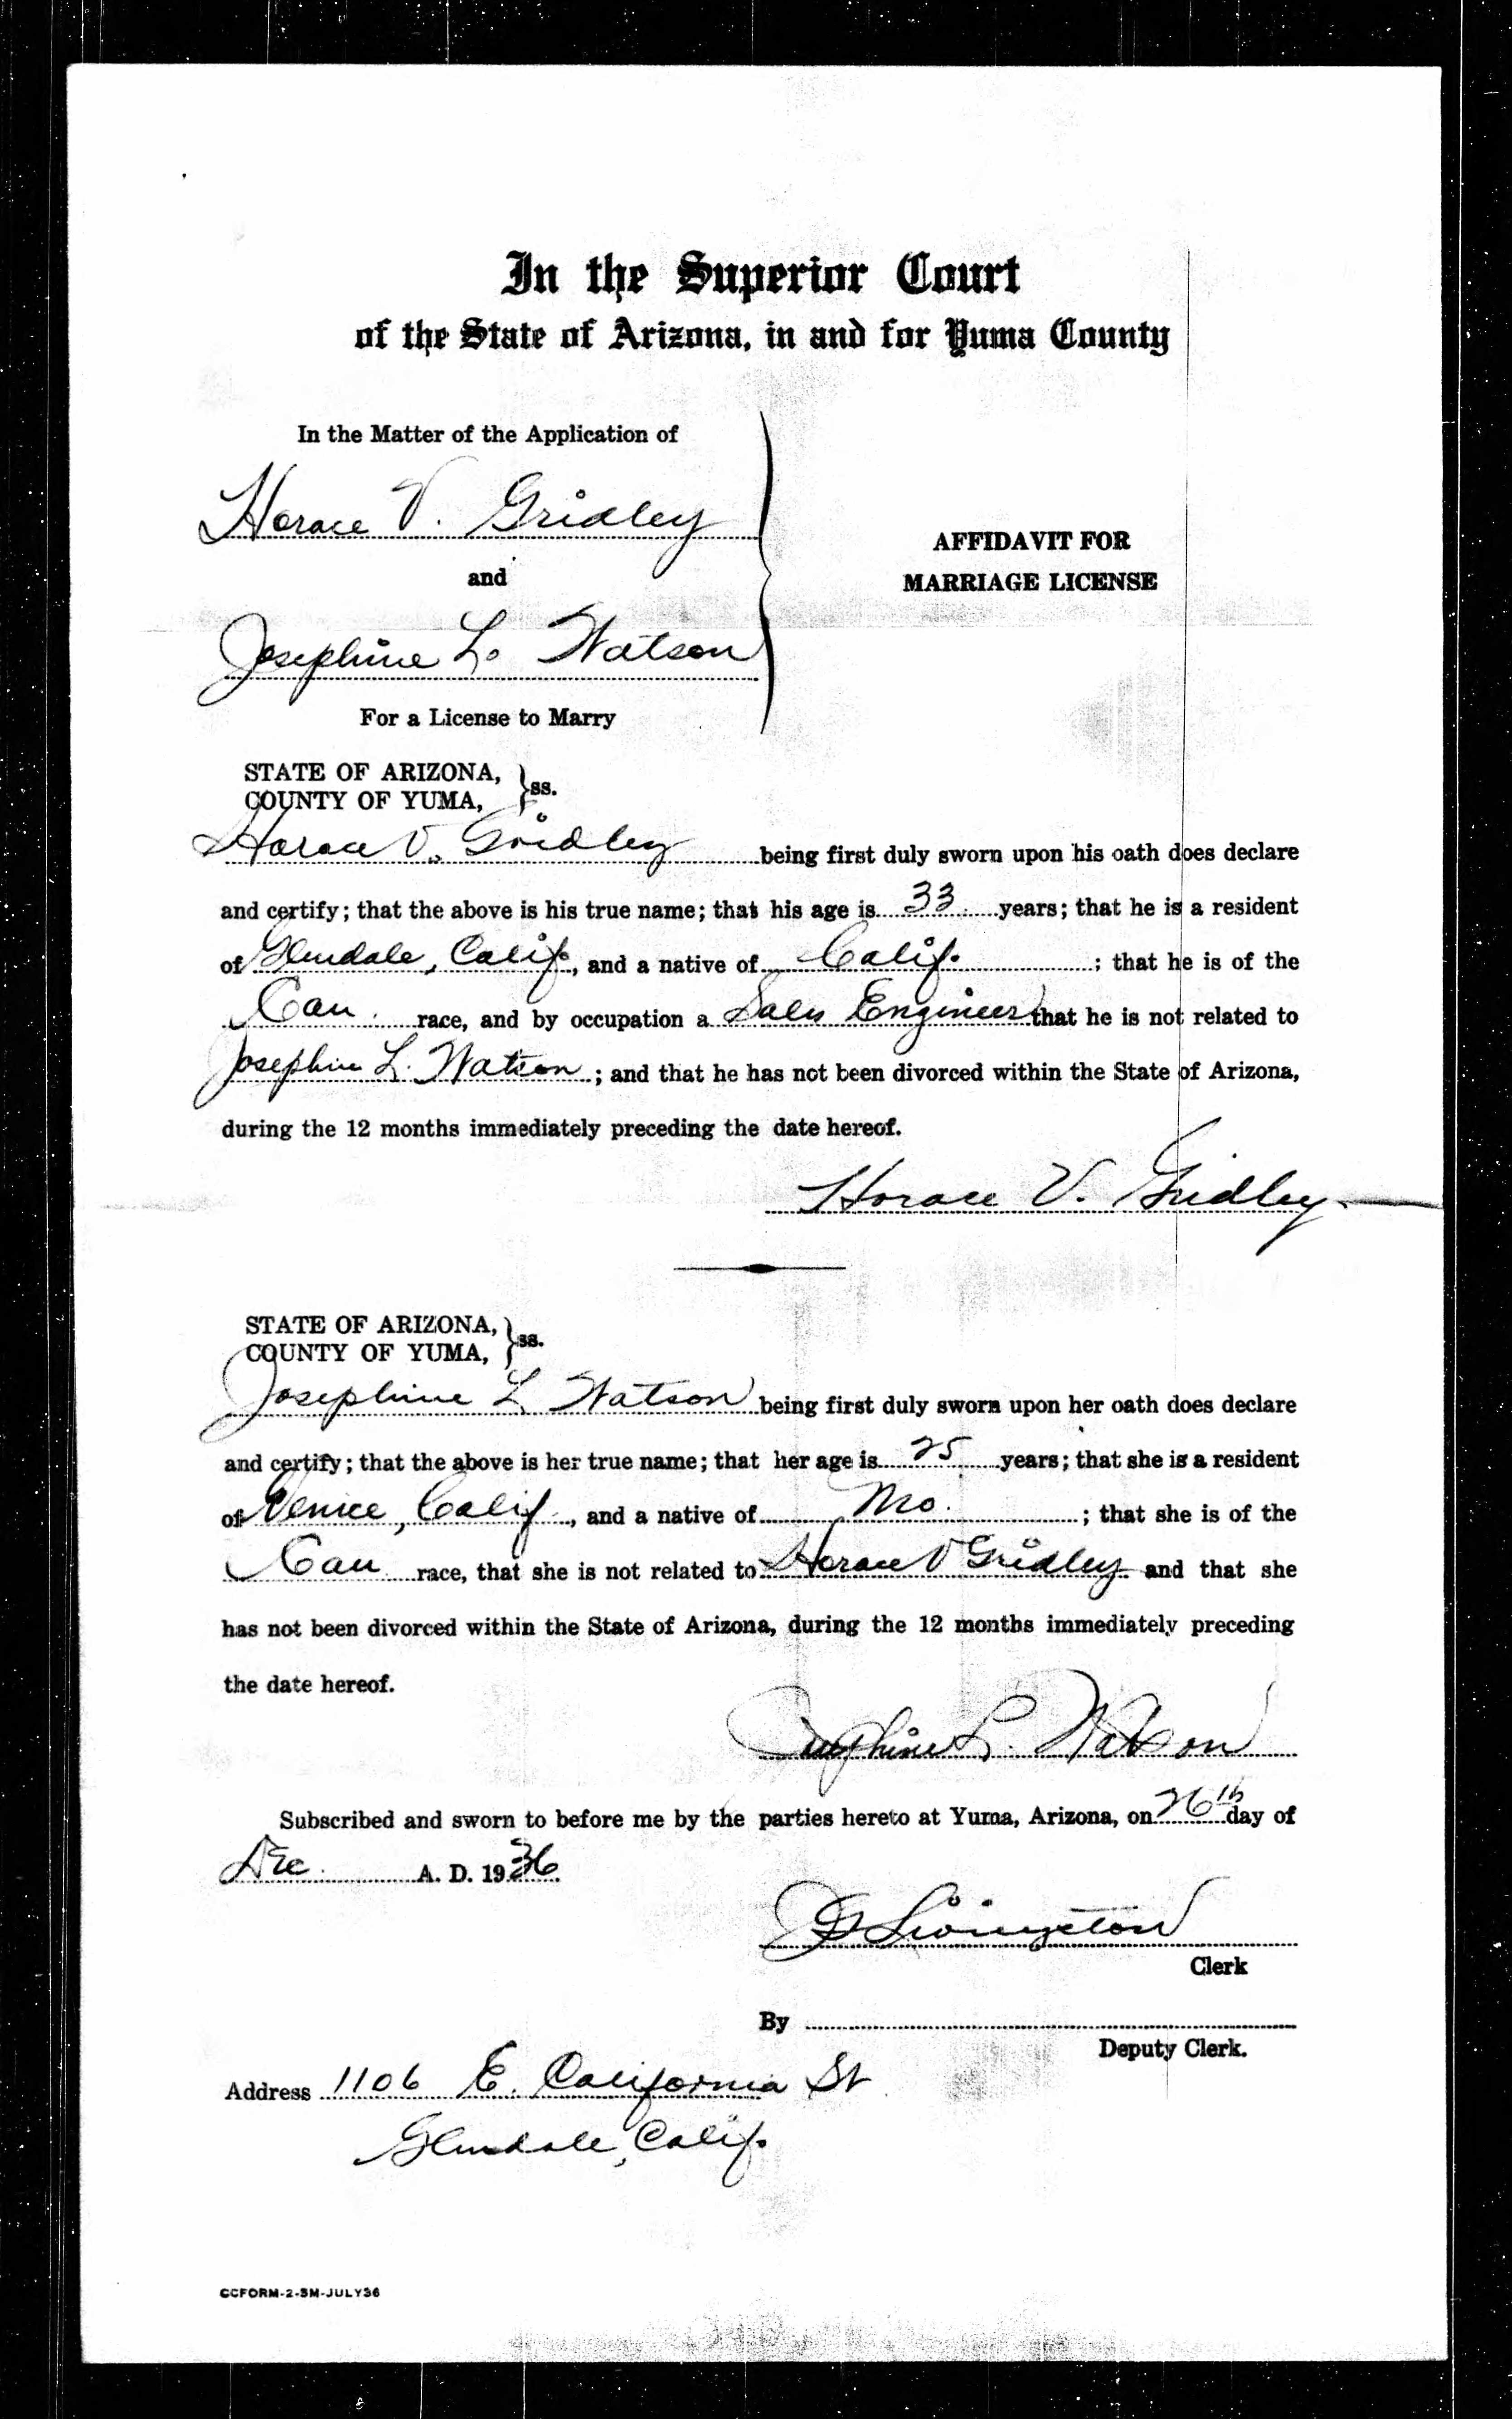 In the Superior Court
of the State of Arizona, in and for Yuma County
In the Matter of the Application of
Horace V. Gridley
and
AFFIDAVIT FOR
MARRIAGE LICENSE
Josephine L. Watson
For a License to Marry
STATE OF ARIZONA,
COUNTY OF YUMA, } ss.
Horace V. Gridley being first duly sworn upon his oath does declare
and certify; that the above is his true name; that his age is 33 years; that he is a resident
of Glendale, Calif., and a native of Calif. ; that he is of the
Cau. race, and by occupation a Sales Engineer that he is not related to
Josephine L. Watson ; and that he has not been divorced within the State of Arizona,
during the 12 months immediately preceding the date hereof.
Horace V. Gridley
STATE OF ARIZONA,
COUNTY OF YUMA, } ss.
Josephine L Watson being first duly sworn upon her oath does declare
and certify; that the above is her true name; that her age is 25 years; that she is a resident
of Venice, Calif., and a native of Mo. ; that she is of the
Cau race, that she is not related to Horace V Gridley and that she
has not been divorced within the State of Arizona, during the 12 months immediately preceding
the date hereof.
Josephine L. Watson
Subscribed and sworn to before me by the parties hereto at Yuma, Arizona, on 26th day of
Dec. A. D. 1936
Livingston
Clerk
By
Deputy Clerk.
Address 1106 E. California St
Glendale, Calif.
CCFORM-2-5M-JULY36